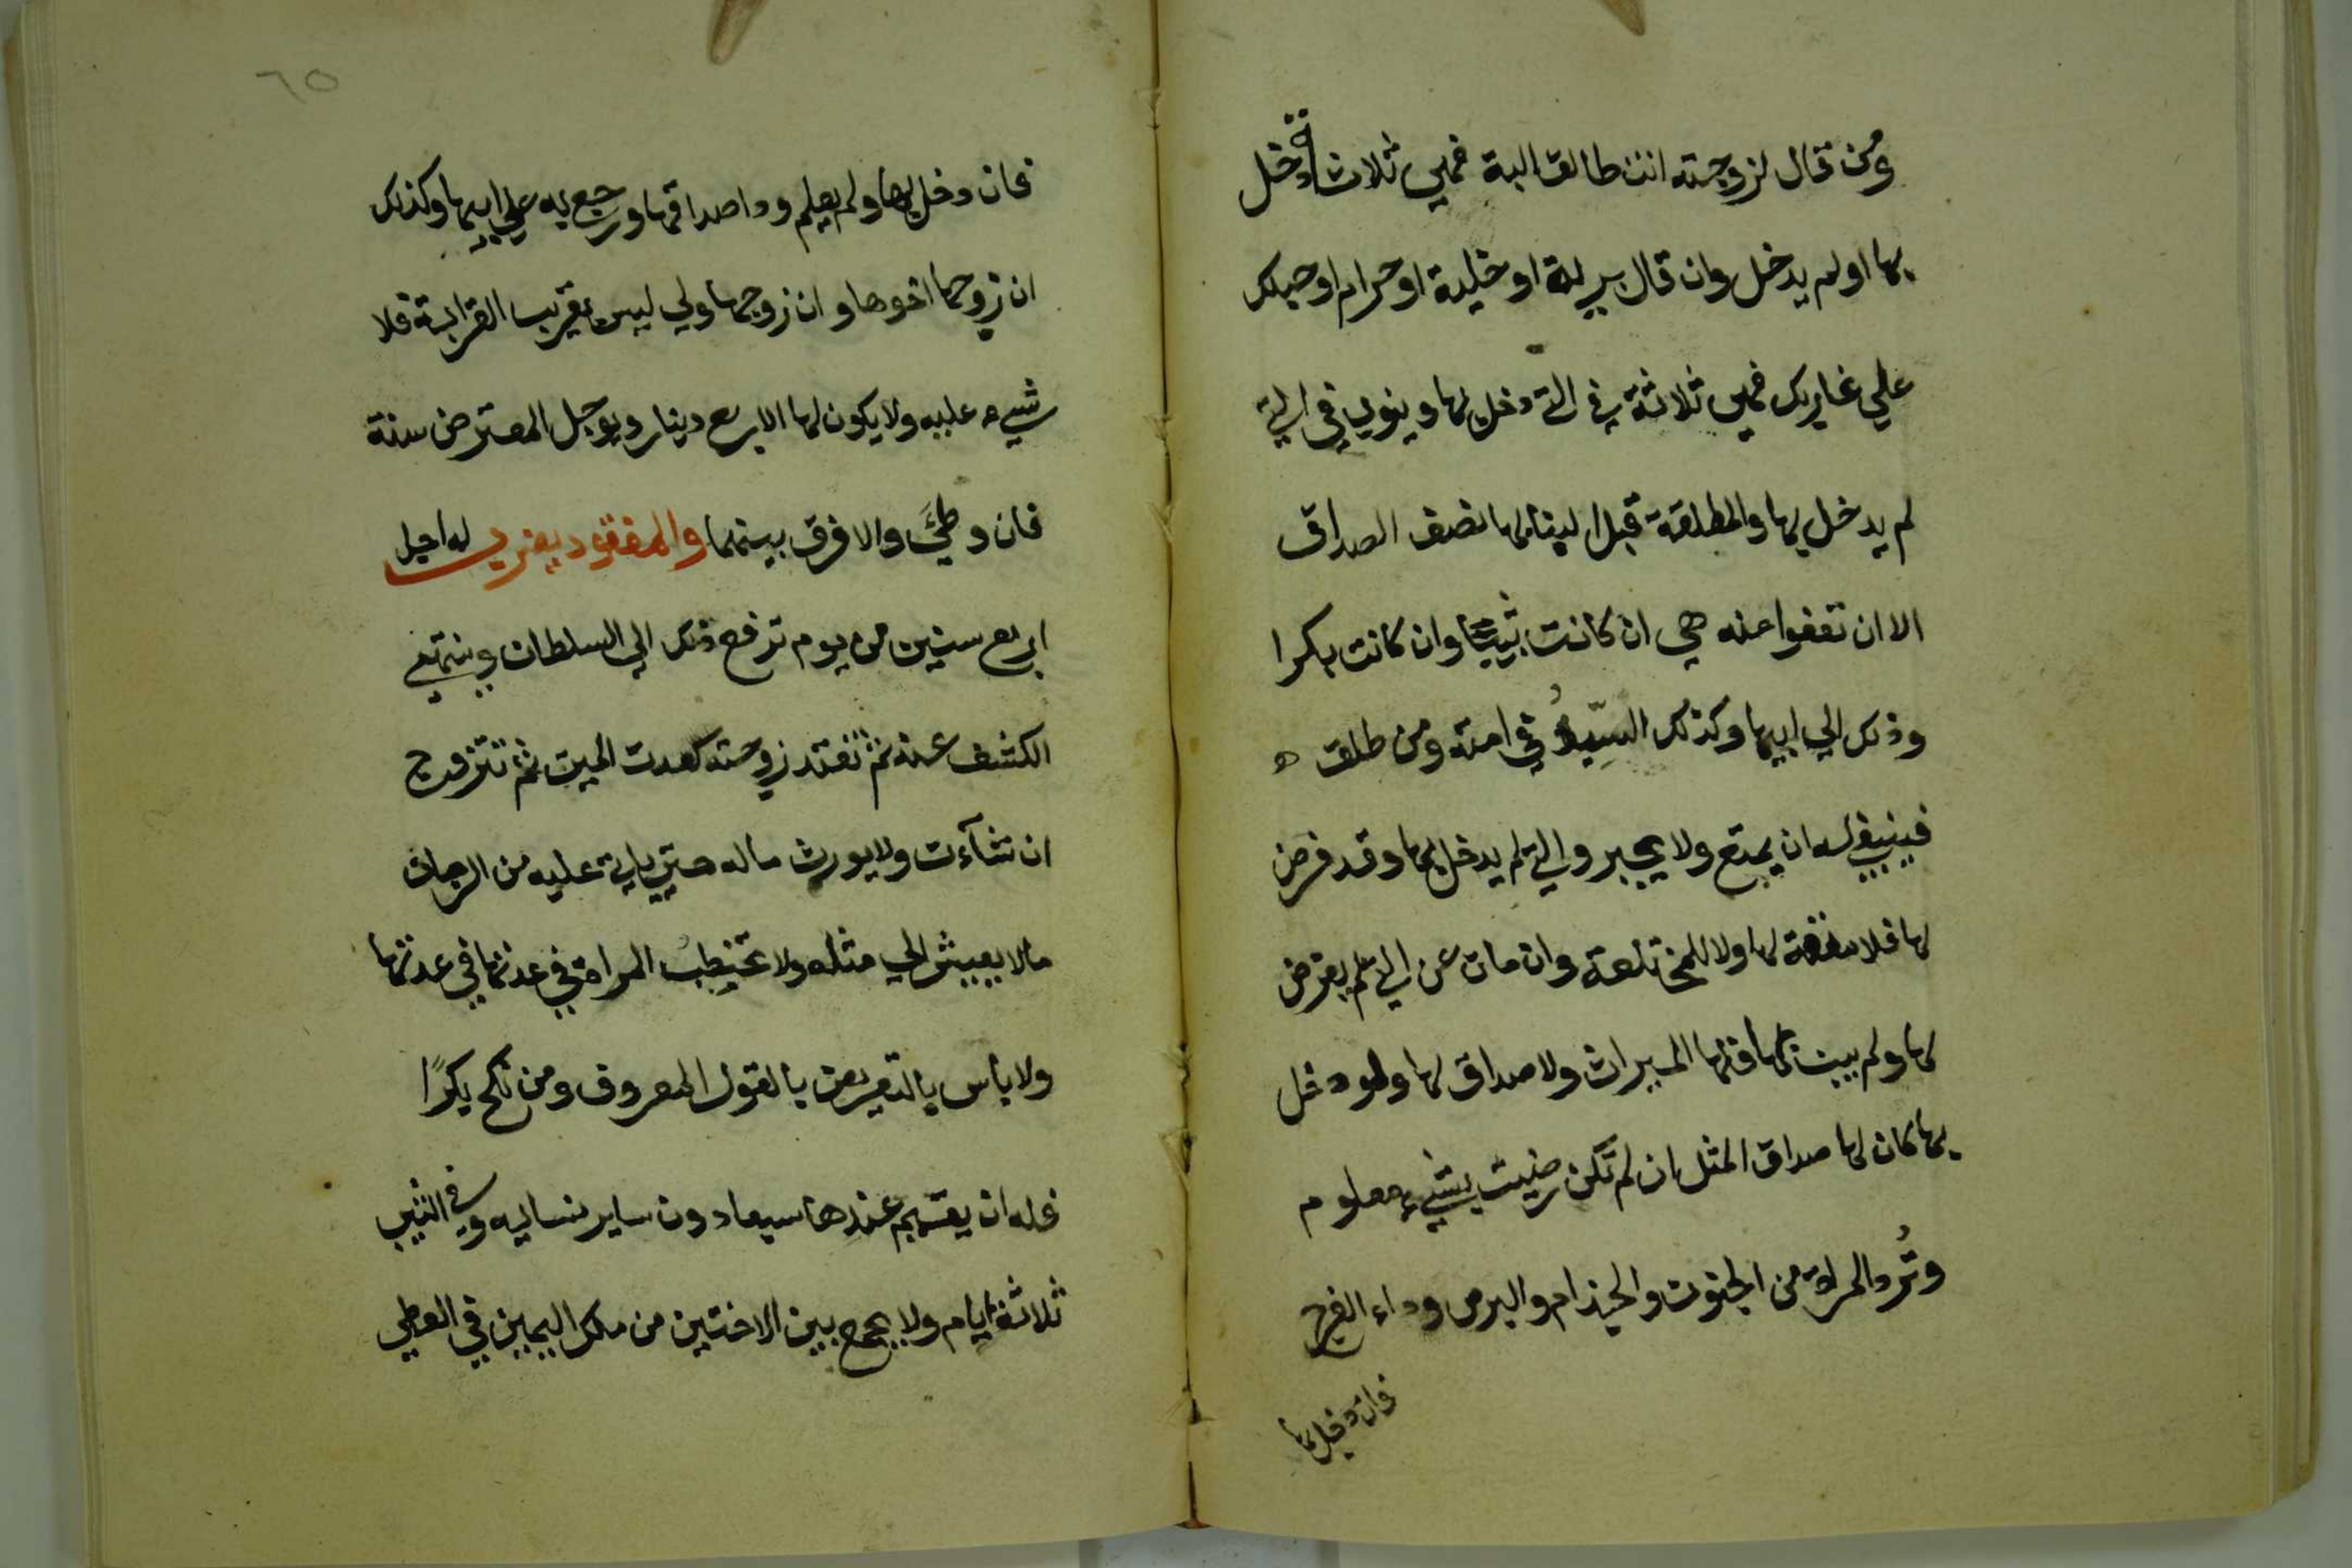 ومن قال لزوجته انت طالق البتة فهي ثلاث دخل
بها او لم يدخل وان قال برية او خلية او حرام او حبلك
علي غاربك فهي ثلاثة في التي دخل بها وينوي في التي
لم يدخل بها والمطلقة قبل البنا لها نصف الصداق
الا ان تعفوا عنه هي ان كانت ثيبا وان كانت بكرا
وذلك الي ابيها وكذلك السيد في امته ومن طلق
فينبغي له ان يمتع ولا يجبر والتي لم يدخل بها وقد فرض
لها فلا متعة لها ولا للمختلعة وان مات عن التي لم يفرض
لها ولم يبن بها فلها الميراث ولا صداق لها ولو دخل
بها كان لها صداق المثل ان لم تكن رضيت بشيء معلوم
وتُرد المراة من الجنون والجذام والبرص وداء الفرج
فان دخل بها
٦٥
فان دخل بها ولم يعلم ودا صداقها ورجع به علي ابيها وكذلك
ان زوجها اخوها وان زوجها ولي ليس بقريب القرابة فلا
شيء عليه ولا يكون لها الا ربع دينار ويوجل المعترض سنة
فان وطئ والا فرق بينهما والمفقود يضرب له اجل
اربع سنين من يوم ترفع ذلك الي السلطان وينتهي
الكشف عنه ثم تعتد زوجته كعدت الميت ثم تتزوج
ان شآءت ولا يورث ماله حتي ياتي عليه من الزمان
مالا يعيش الي مثله ولا تخطب المراة في عدتها في عدتها
ولا باس بالتعريض بالقول المعروف ومن نكح بكرًا
فله ان يقيم عندها سبعا دون ساير نسايه وفي الثيب
ثلاثة ايام ولا يجمع بين الاختين من ملك اليمين في الوطي